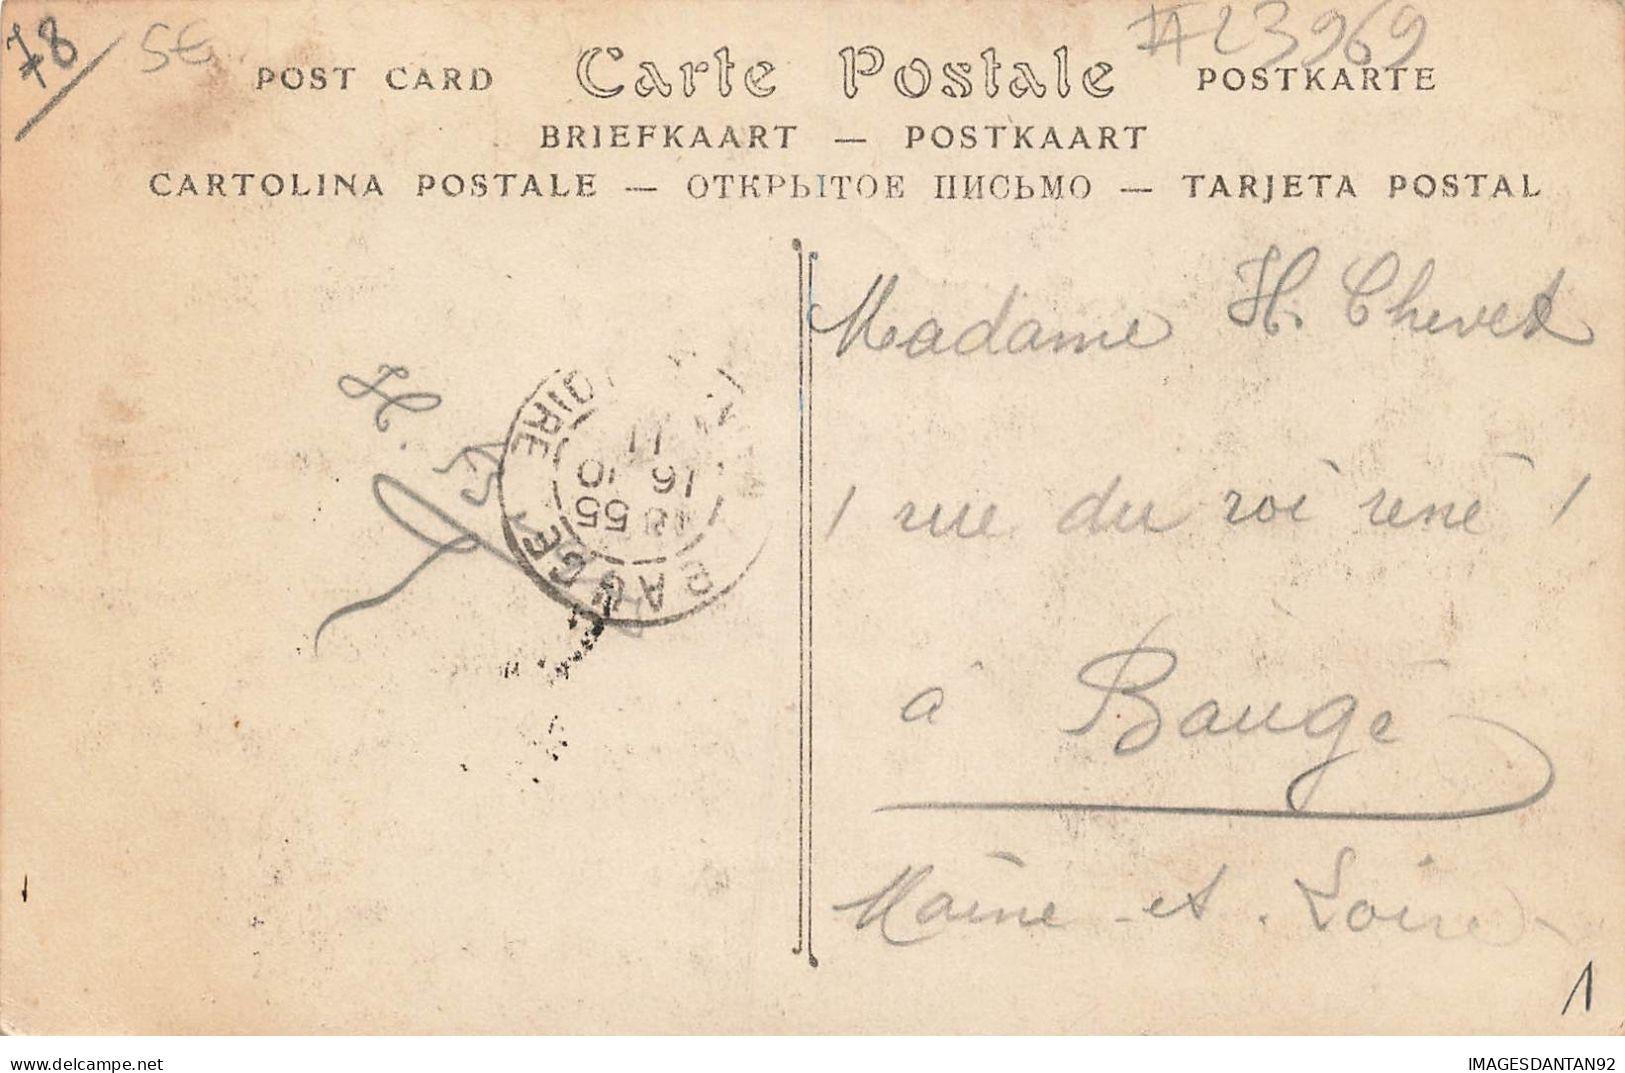 78 5€ #23969
POST CARD Carte Postale POSTKARTE
BRIEFKAART — POSTKAART
CARTOLINA POSTALE — ОТКРЫТОЕ ПИСЬМО — TARJETA POSTAL
Madame H. Chevet
1 rue du roi rené 1
à Baugé
Maine-et-Loire
H.
BAUGÉ
LOIRE
18 55
16 10
11
1
delcampe.net
IMAGESDANTAN92